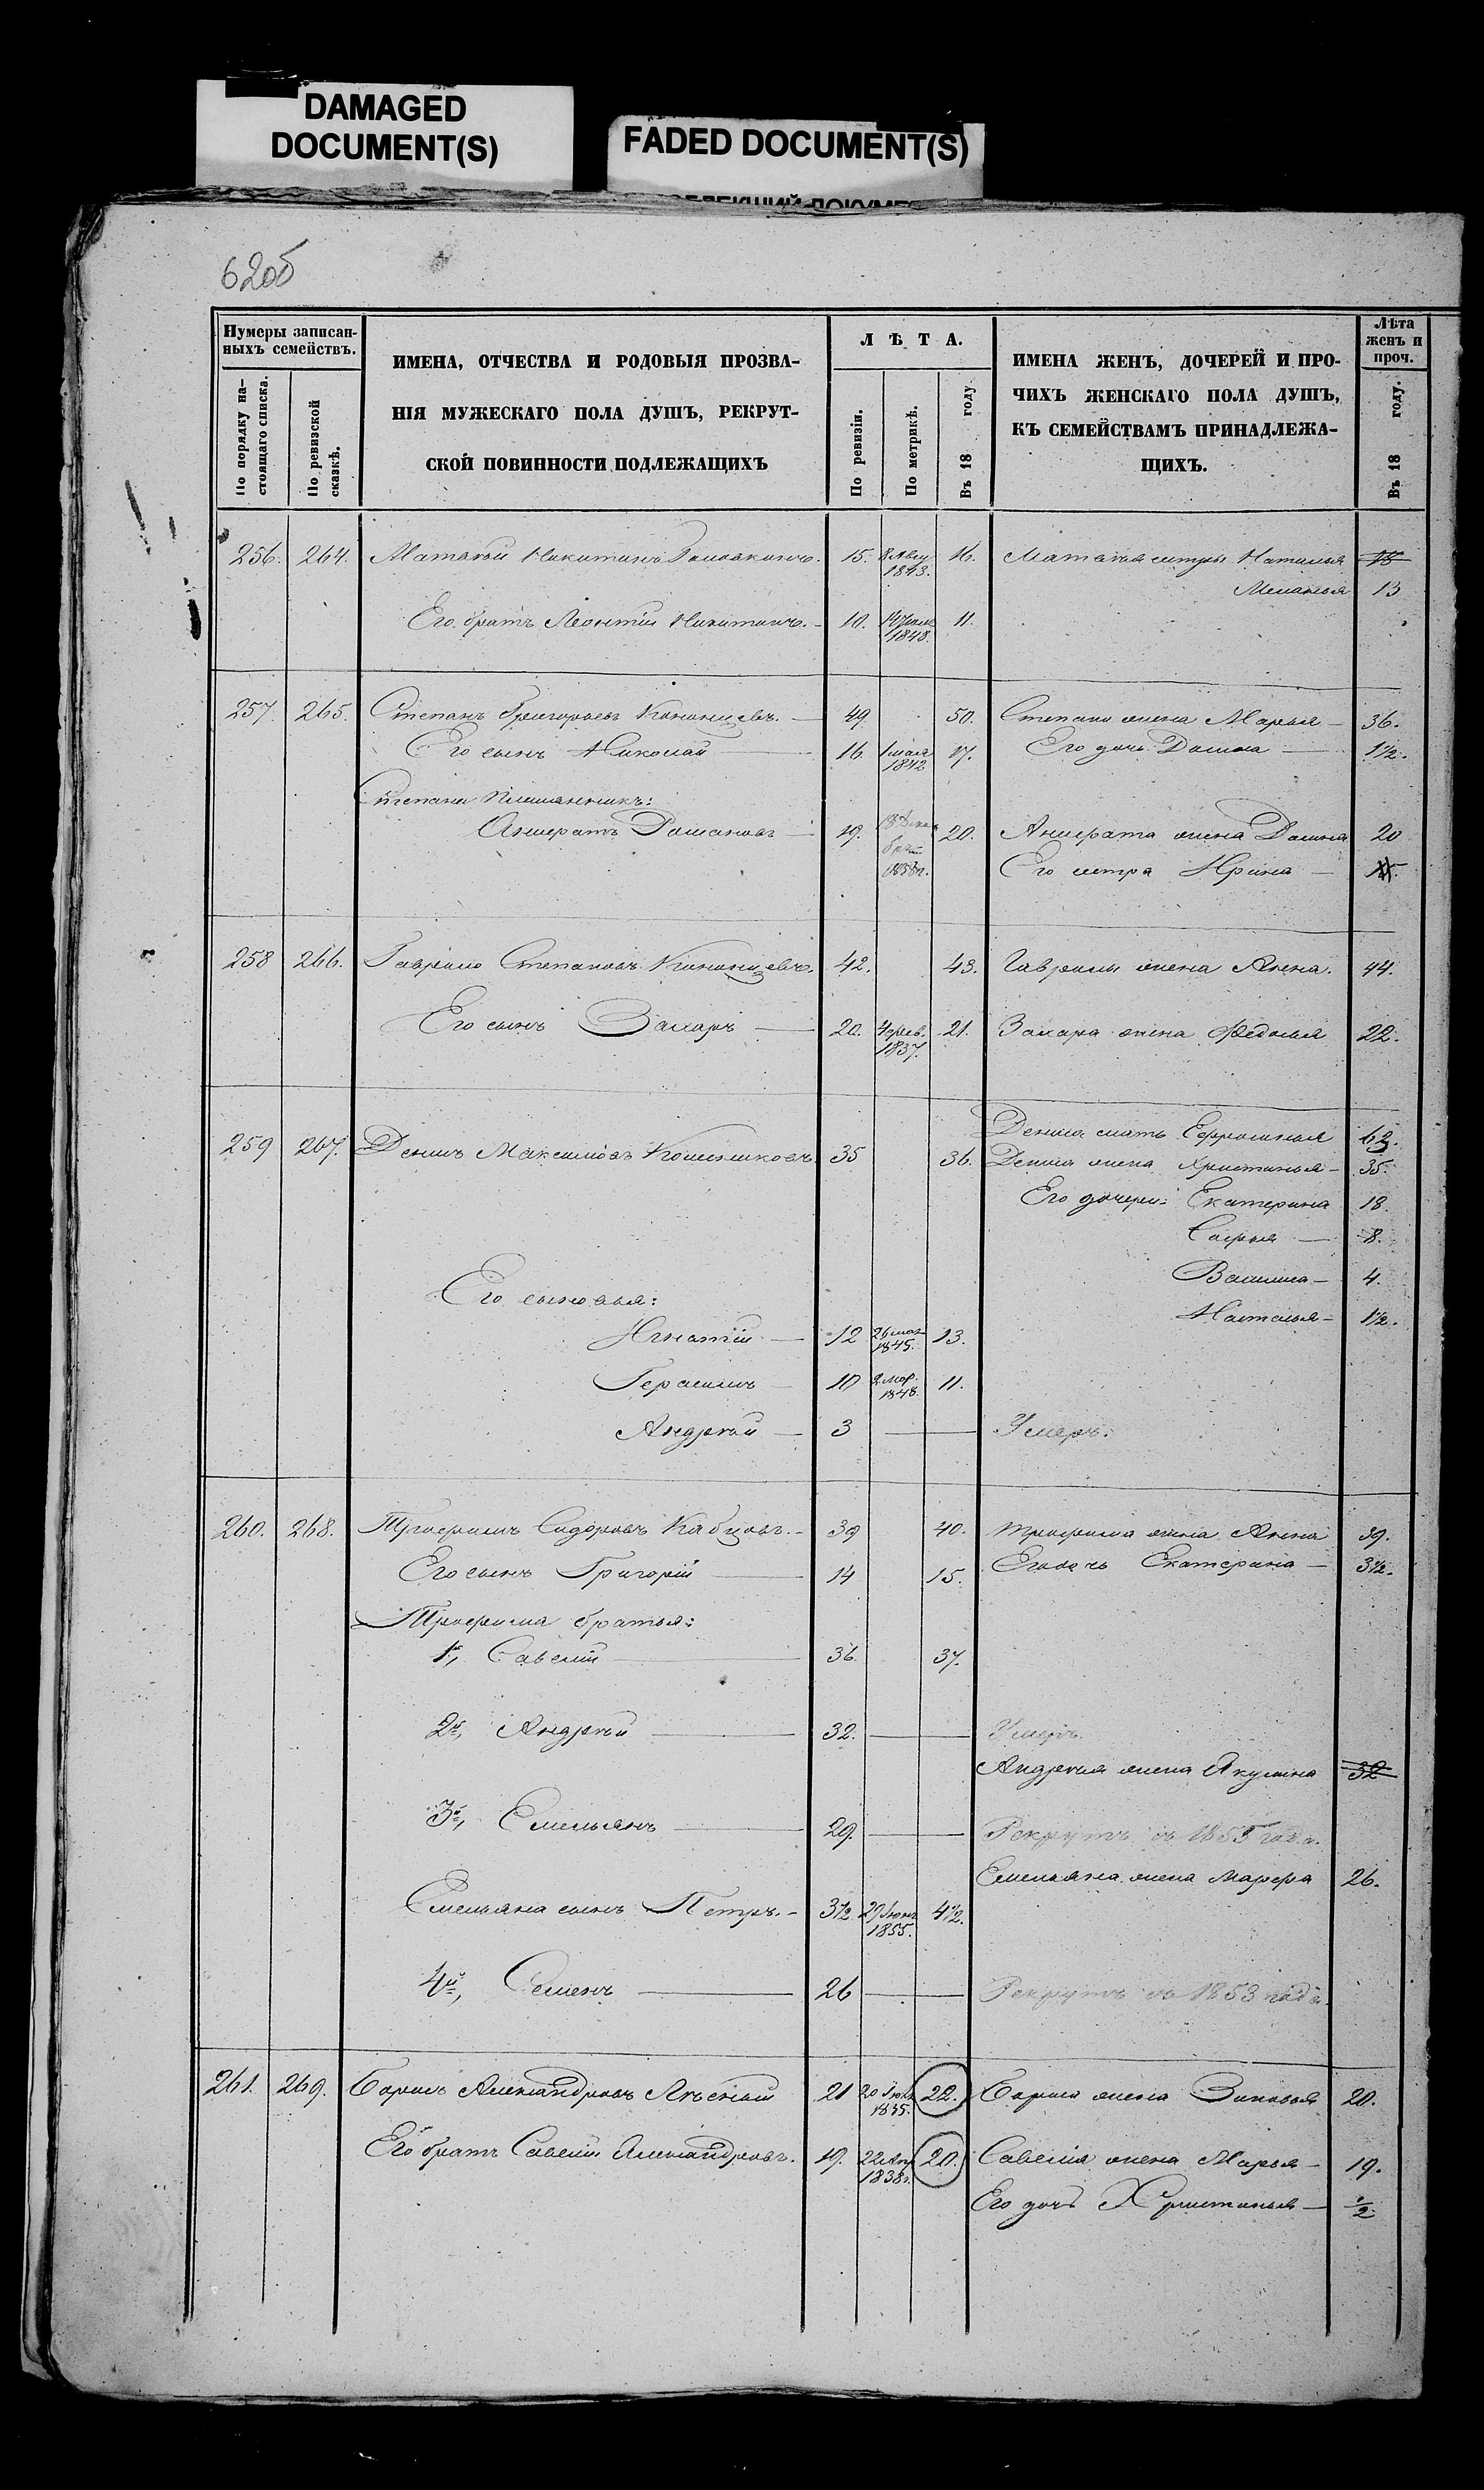 DAMAGED
DOCUMENT(S)
FADED DOCUMENT(S)
620б
Нумеры записан-
ныхъ семействъ.
По порядку на-
стоящаго списка.
По ревизской
сказкѣ.
ИМЕНА, ОТЧЕСТВА И РОДОВЫЯ ПРОЗВА-
НІЯ МУЖЕСКАГО ПОЛА ДУШЪ, РЕКРУТ-
СКОЙ ПОВИННОСТИ ПОДЛЕЖАЩИХЪ
ЛѢТА.
По ревизіи.
По метрикѣ.
Въ 18 году
ИМЕНА ЖЕНЪ, ДОЧЕРЕЙ И ПРО-
ЧИХЪ ЖЕНСКАГО ПОЛА ДУШЪ,
КЪ СЕМЕЙСТВАМЪ ПРИНАДЛЕЖА-
ЩИХЪ.
Лѣта
женъ и
проч.
Въ 18 году.
256. 264. Матвѣй Никитинъ 15. 1843. 16. Матвѣя сестры Наталья 15
Меланья 13
Его братъ Леонтій Никитинъ. 10. 1848. 11.
257. 265. Степанъ Григорьевъ Кононцевъ. 49 50. Степана жена Марья 36.
Его сынъ Николай 16. 1 мая 1842 17. Его дочь Домна 1½.
Степана племянникъ:
Анкратъ Романовъ 19. 20. Анкрата жена Домна 20
Его сестра Ирина
258 266. Гаврило Степановъ Кононцевъ. 42. 43. Гаврилы жена Анна. 44.
Его сынъ Захаръ 20. 4 фев. 1837. 21. Захара жена Федосья 22.
259 267. Денисъ Максимовъ 35 36. Дениса мать Ефросинья 63.
Дениса жена Христинья 35.
Его дочери: Екатерина 18.
Софья 8.
Васила 4.
Наталья 1½.
Его сыновья:
Игнатій 12 26 мая 1845. 13.
Герасимъ 10 2 мар. 1848. 11.
Андрей 3 Умеръ.
260. 268. Трофимъ Сидоровъ Кабцовъ. 39 40. Трофима жена Анна 39.
Его сынъ Григорій 14 15. Его дочь Екатерина 3½.
Трофима братья:
1й, Савелій 36. 37.
2й, Андрей 32. Умеръ.
Андрея жена Акулина 32
3й, Емельянъ 29. Рекрутъ съ 1855 года.
Емельяна жена Марфа 26.
Емельяна сынъ Петръ. 3½. 29 Іюня 1855. 4½.
4й, Семенъ 26 Рекрутъ съ 1853 года.
261. 269. Борисъ Александровъ Лѣсной 21 20 Іюл. 1835. 22. Бориса жена Зиновья 20.
Его братъ Савелій Александровъ. 19. 22 Апр 1838г. 20. Савелія жена Марья 19.
Его дочь Христинья ½